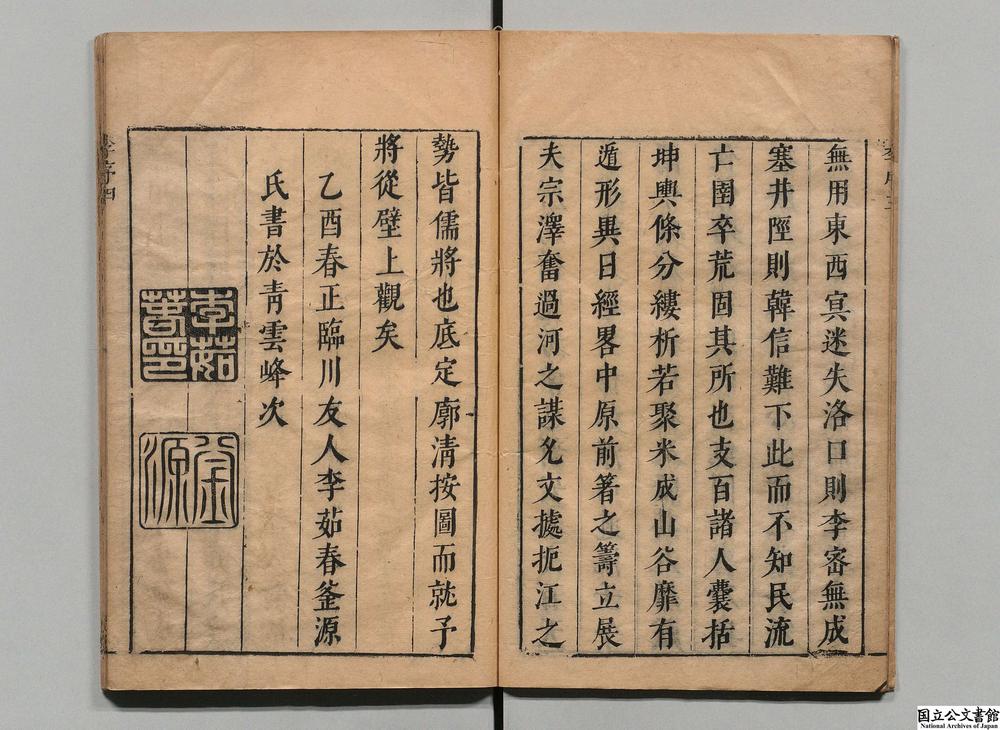 無用東西冥迷失洛口則李密無成
塞井陘則韓信難下此而不知民流
亡圉卒荒固其所也支百諸人囊括
坤輿條分縷析若聚米成山谷靡有
遁形異日經畧中原前箸之籌立展
夫宗澤奮過河之謀允文據扼江之
勢皆儒將也底定廓清按圖而就予
將從壁上觀矣
乙酉春正臨川友人李茹春釜源
氏書於青雲峰次
李茹
春印
釜
源
李序四
国立公文書館
National Archives of Japan